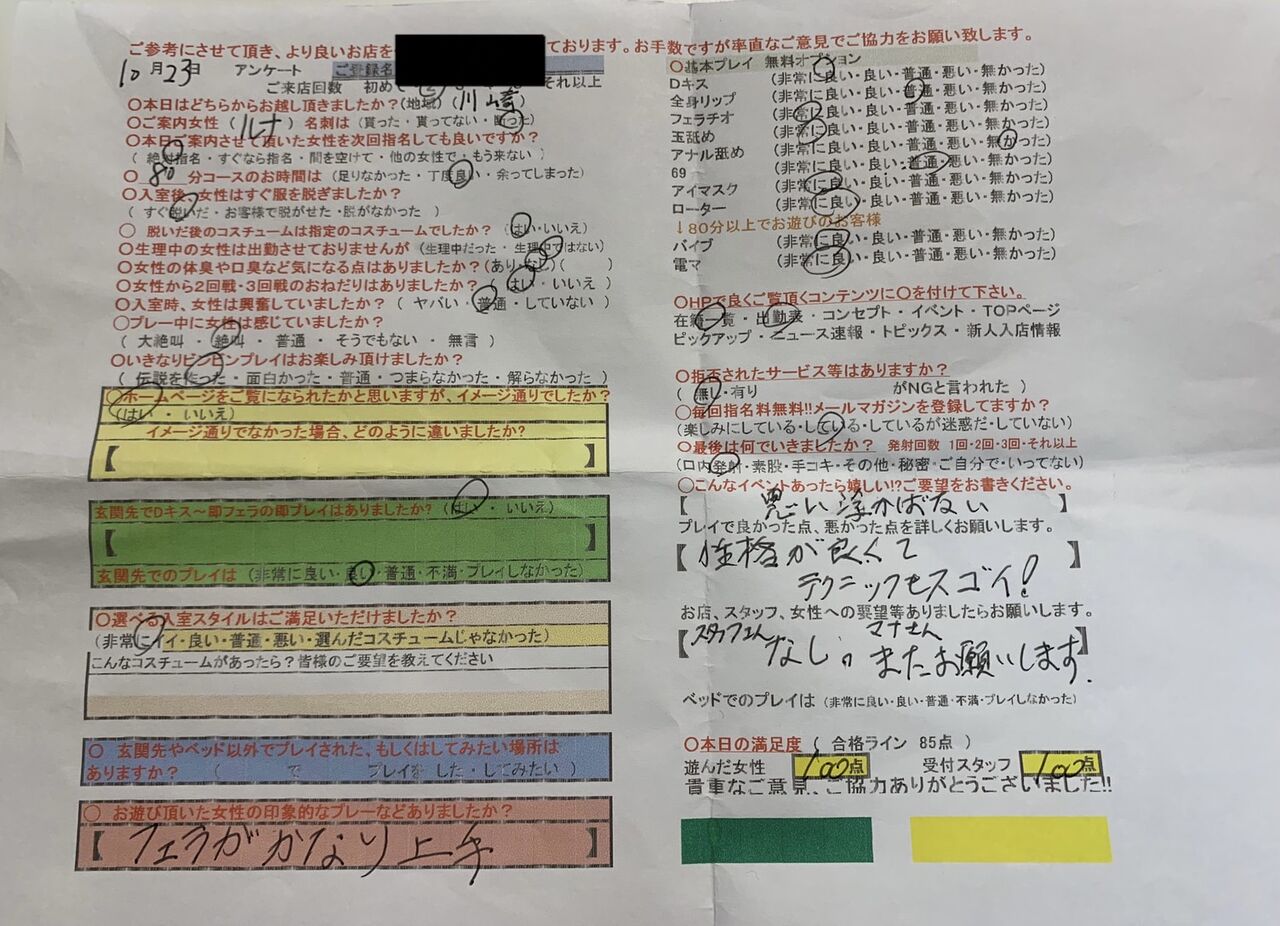 ご参考にさせて頂き、より良いお店を
ております。お手数ですが率直なご意見でご協力をお願い致します。
10月23日 アンケート ご登録名
ご来店回数 初めて
それ以上
〇本日はどちらからお越し頂きましたか?(地域)(川崎)
〇ご案内女性(ルナ)名刺は(貰った・貰ってない・断った)
〇本日ご案内させて頂いた女性を次回指名しても良いですか?
(絶対指名・すぐなら指名・間を空けて・他の女性で・もう来ない)
〇 80 分コースのお時間は(足りなかった・丁度良い・余ってしまった)
〇入室後、女性はすぐ服を脱ぎましたか?
(すぐ脱いだ・お客様で脱がせた・脱がなかった)
〇 脱いだ後のコスチュームは指定のコスチュームでしたか?(はい・いいえ)
〇生理中の女性は出勤させておりませんが(生理中だった・生理中ではない)
〇女性の体臭や口臭など気になる点はありましたか?(あり・なし)( )
〇女性から2回戦・3回戦のおねだりはありましたか?(はい・いいえ)
〇入室時、女性は興奮していましたか?(ヤバい・普通・していない)
〇プレー中に女性は感じていましたか?
(大絶叫・絶叫・普通・そうでもない・無言)
〇いきなりビンビンプレイはお楽しみ頂けましたか?
(伝説を作った・面白かった・普通・つまらなかった・解らなかった)
〇ホームページをご覧になられたかと思いますが、イメージ通りでしたか?
(はい・いいえ)
イメージ通りでなかった場合、どのように違いましたか?
【 】
玄関先でDキス～即フェラの即プレイはありましたか?(はい・いいえ)
【 】
玄関先でのプレイは(非常に良い・良い・普通・不満・プレイしなかった)
〇選べる入室スタイルはご満足いただけましたか?
(非常にイイ・良い・普通・悪い・選んだコスチュームじゃなかった)
こんなコスチュームがあったら?皆様のご要望を教えてください
〇 玄関先やベッド以外でプレイされた、もしくはしてみたい場所は
ありますか?( で プレイを した・してみたい)
〇 お遊び頂いた女性の印象的なプレーなどありましたか?
【フェラがかなり上手】
〇基本プレイ 無料オプション
Dキス (非常に良い・良い・普通・悪い・無かった)
全身リップ (非常に良い・良い・普通・悪い・無かった)
フェラチオ (非常に良い・良い・普通・悪い・無かった)
玉舐め (非常に良い・良い・普通・悪い・無かった)
アナル舐め (非常に良い・良い・普通・悪い・無かった)
69 (非常に良い・良い・普通・悪い・無かった)
アイマスク (非常に良い・良い・普通・悪い・無かった)
ローター (非常に良い・良い・普通・悪い・無かった)
↓80分以上でお遊びのお客様
バイブ (非常に良い・良い・普通・悪い・無かった)
電マ (非常に良い・良い・普通・悪い・無かった)
〇HPで良くご覧頂くコンテンツに〇を付けて下さい。
在籍一覧・出勤表・コンセプト・イベント・TOPページ
ピックアップ・ニュース速報・トピックス・新人入店情報
〇拒否されたサービス等はありますか?
(無し・有り がNGと言われた)
〇毎回指名料無料!!メールマガジンを登録してますか?
(楽しみにしている・している・しているが迷惑だ・していない)
〇最後は何でいきましたか? 発射回数 1回・2回・3回・それ以上
(口内発射・素股・手コキ・その他・秘密・ご自分で・いってない)
〇こんなイベントあったら嬉しい!?ご要望をお書きください。
【思い浮かばない】
プレイで良かった点、悪かった点を詳しくお願いします。
【性格が良くて
テクニックもスゴイ!】
お店、スタッフ、女性への要望等ありましたらお願いします。
【スタッフさん
なし。
マナさん
またお願いします.】
ベッドでのプレイは(非常に良い・良い・普通・不満・プレイしなかった)
〇本日の満足度(合格ライン 85点)
遊んだ女性 100点 受付スタッフ 100点
貴重なご意見、ご協力ありがとうございました!!